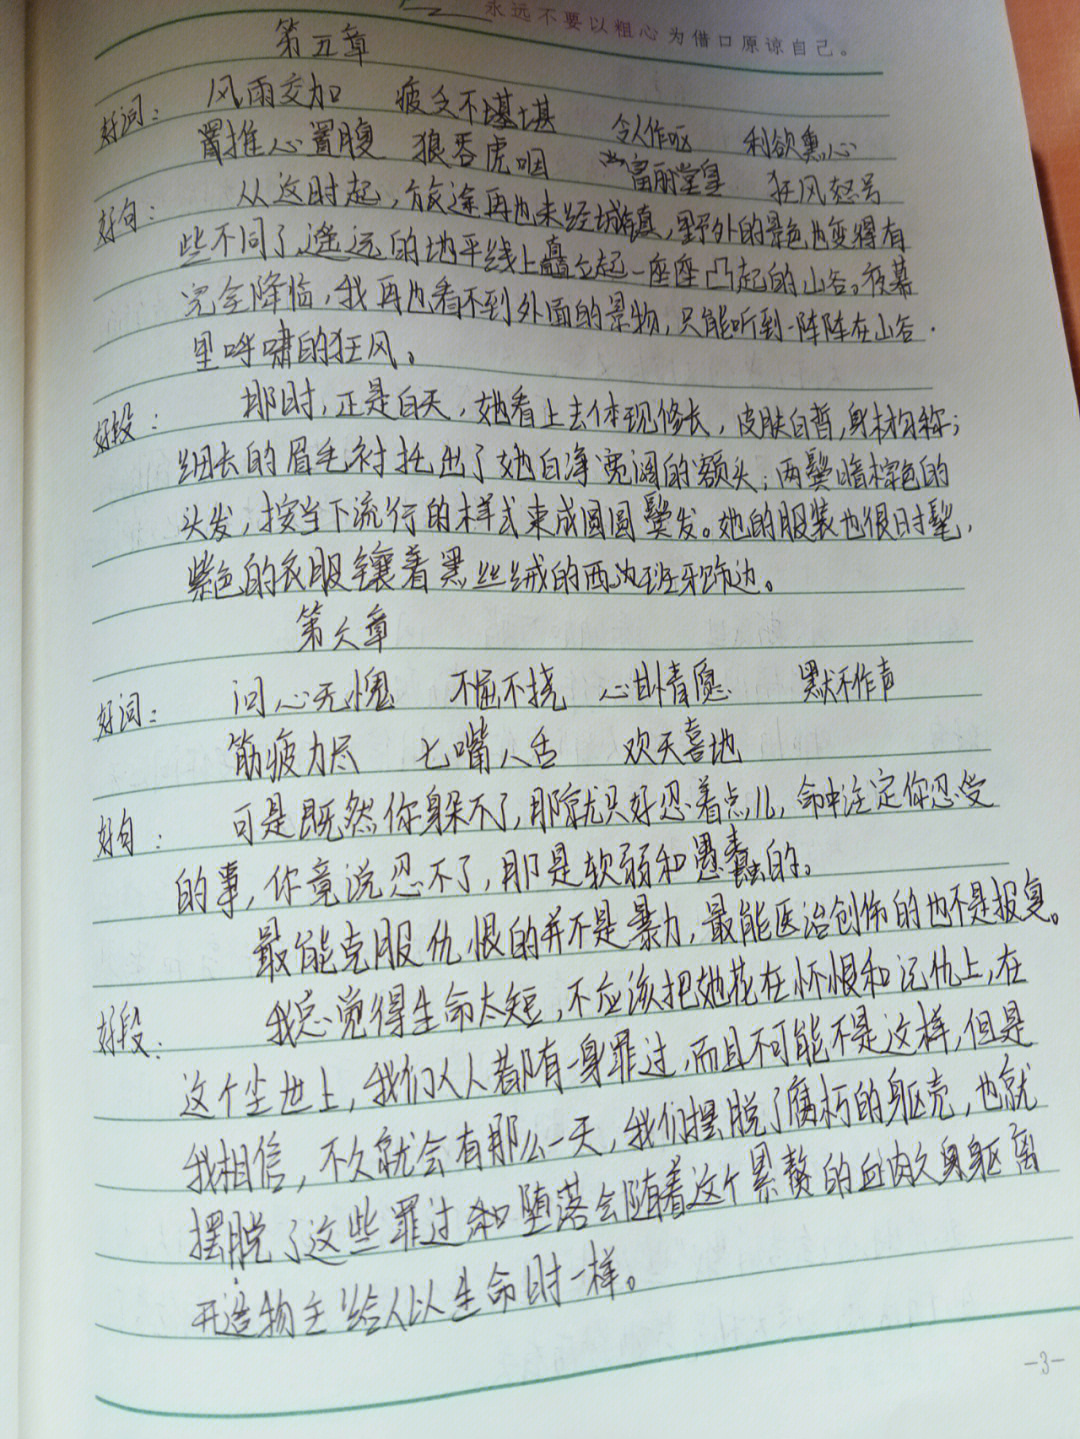 永远不要以粗心为借口原谅自己。
第五章
好词： 风雨交加 疲乏不堪堪 令人作呕 利欲熏心
置推心置腹 狼吞虎咽 富丽堂皇 狂风怒号
好句： 从这时起，旅途再也未经城镇，野外的景色也变得有
些不同了，遥远的地平线上矗立起一座座凸起的山谷。夜幕
完全降临，我再也看不到外面的景物，只能听到一阵阵在山谷
里呼啸的狂风。
好段： 那时，正是白天，她看上去体现修长，皮肤白晳，身材匀称；
细长的眉毛衬托出了她白净宽阔的额头；两鬓暗棕色的
头发，按当下流行的样式束成圆圆鬓发。她的服装也很时髦，
紫色的衣服镶着黑丝绒的西边班牙饰边。
第六章
好词： 问心无愧 不屈不挠 心甘情愿 默不作声
筋疲力尽 七嘴八舌 欢天喜地
好句： 可是既然你躲不了，那就只好忍着点儿，命中注定你忍受
的事，你竟说忍不了，那是软弱和愚蠢的。
最能克服仇恨的并不是暴力，最能医治创伤的也不是报复。
好段： 我总觉得生命太短，不应该把她花在怀恨和记仇上，在
这个尘世上，我们人人都有一身罪过，而且不可能不是这样，但是
我相信，不久就会有那么一天，我们摆脱了腐朽的躯壳，也就
摆脱了这些罪过和堕落会随着这个累赘的血肉之身躯离
开造物主给人以生命时一样。
-3-